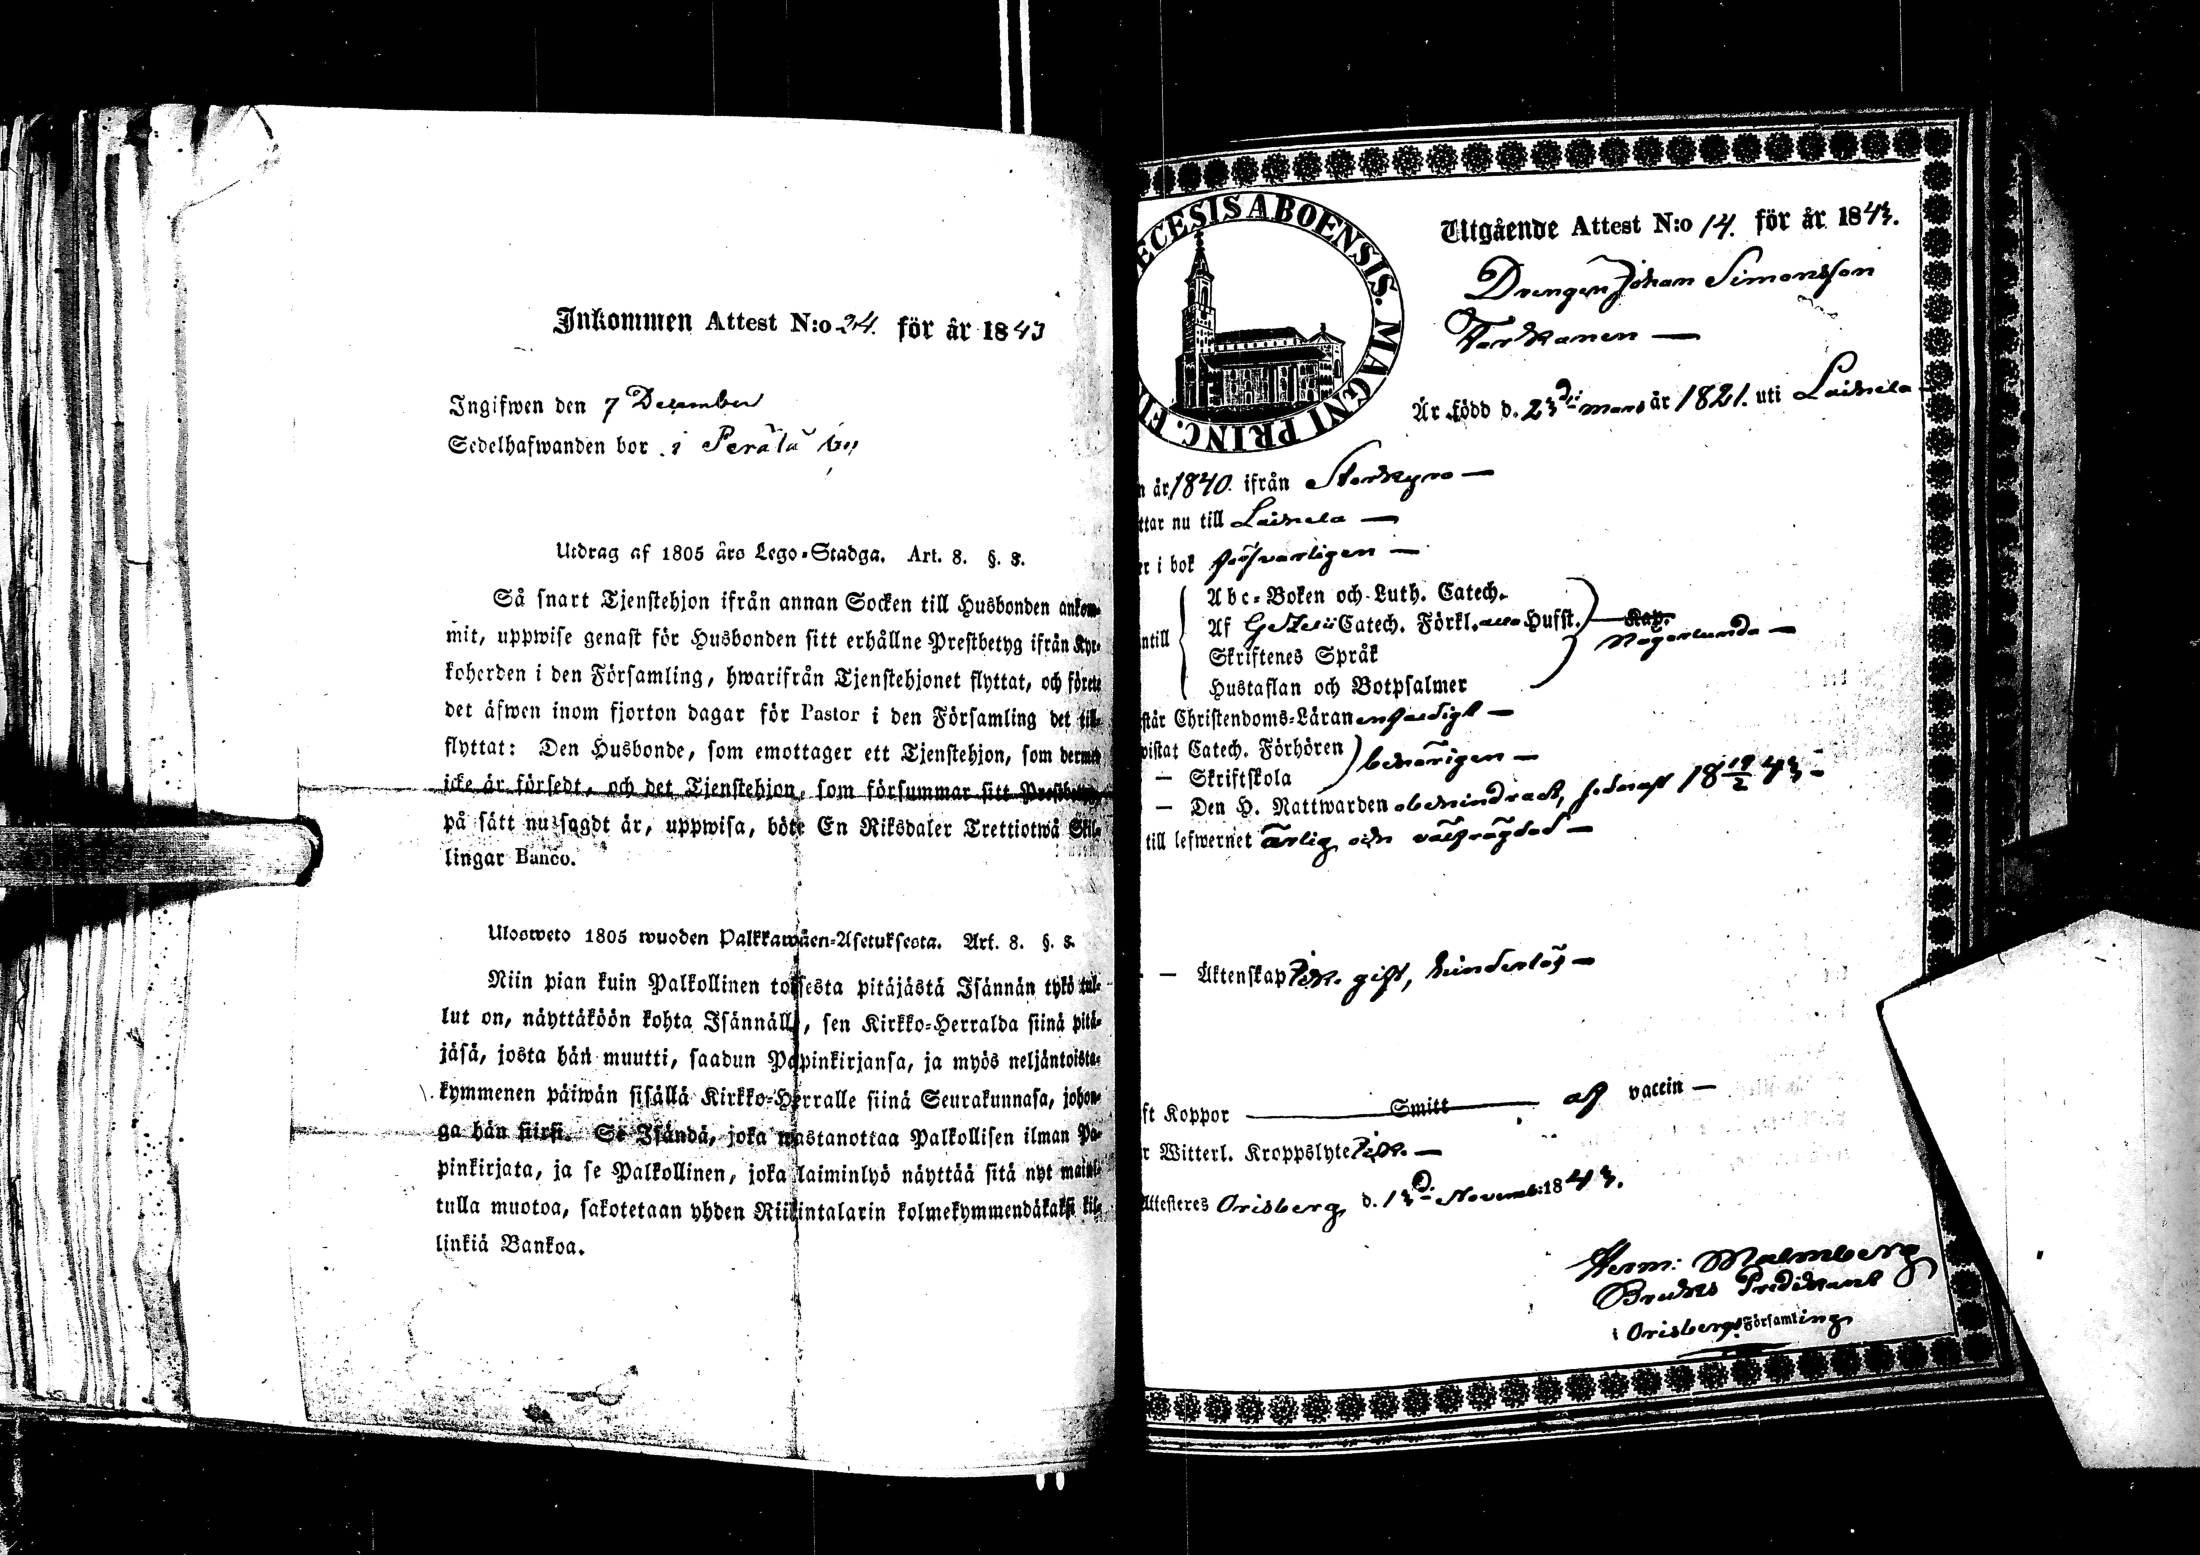 Inkommen Attest N:o 24. för år 1843
Ingifwen den 7 December
Sedelhafwanden bor i Perälä by
Utdrag af 1805 års Lego-Stadga. Art. 8. §. 3.
Så snart Tjenstehjon ifrån annan Socken till Husbonden ankom-
mit, uppwise genast för Husbonden sitt erhållne Prestbetyg ifrån Kyr-
koherden i den Församling, hwarifrån Tjenstehjonet flyttat, och förete
det äfwen inom fjorton dagar för Pastor i den Församling det till-
flyttat: Den Husbonde, som emottager ett Tjenstehjon, som dermed
icke är försedt, och det Tjenstehjon, som försummar sitt Prestbetyg
på sätt nu sagdt är, uppwisa, böte En Riksdaler Trettiotwå Skil-
lingar Banco.
Ulosweto 1805 wuoden Palkkawäen-Asetuksesta. Art. 8. §. 3.
Niin pian kuin Palkollinen toisesta pitäjästä Isännän tykö tul-
lut on, näyttäköön kohta Isännälle, sen Kirkko-Herralda siinä pitä-
jäsä, josta hän muutti, saadun Papinkirjansa, ja myös neljäntoista-
kymmenen päiwän sisällä Kirkko-Herralle siinä Seurakunnasa, johon-
ga hän siirsi. Se Isändä, joka wastanottaa Palkollisen ilman Pa-
pinkirjata, ja se Palkollinen, joka laiminlyö näyttää sitä nyt maini-
tulla muotoa, sakotetaan yhden Riikintalarin kolmekymmendäkaksi kil-
linkiä Bankoa.
ECESIS ABOENSIS. MAGNI PRINC. FI
Utgående Attest N:o 14. för år 1843.
Drengen Johan Simonsson
Är född d. 23 Mars år 1821. uti Laihela
år 1840. ifrån Storkyro
ttar nu till Laihela
i bok försvarligen
Abc-Boken och Luth. Catech.
Af Catech. Förkl. Hufst. Kap.
ntill Någorlunda
Skriftenes Språk
Hustaflan och Botpsalmer
står Christendoms-Läran enfaldigt
wistat Catech. Förhören behörigen
— Skriftskola
— Den H. Nattwarden obehindrad, sednast 18 19/2 43
till lefwernet ärlig och välfrägdad
— — Äktenskap Ick. gift, hinderlös
ft Koppor Smitt af vaccin
r Witterl. Kroppslyte Ick.
Attesteres Orisberg d. 13 Novemb: 1843.
Herm: Malmberg
Bruks Predikant
i Orisbergs Församling